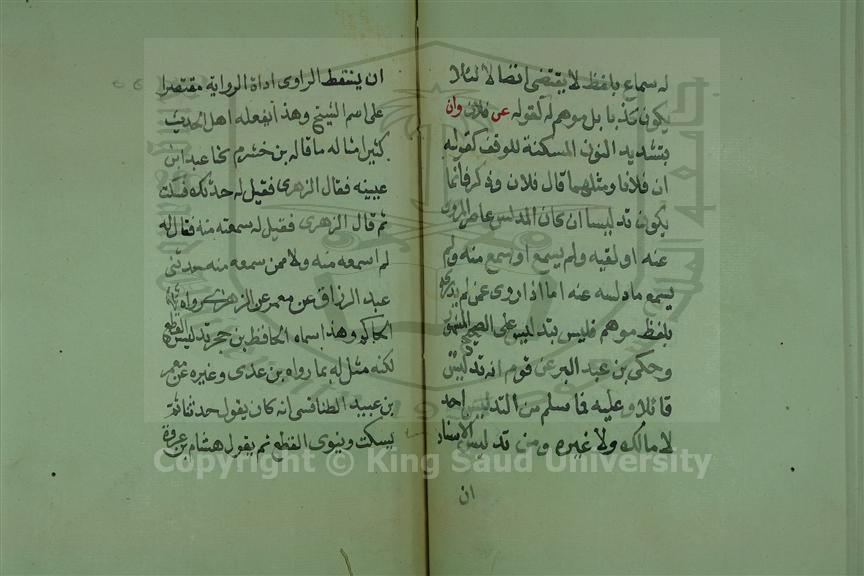 له سماع بلفظ لا يقتضي اتصالا لئلا
يكون كذبا بل موهم له كقوله عن فلان وان
بتشديد النون المسكنة للوقف كقوله
ان فلانا ومثلهما قال فلان وذكر فانما
يكون تدليسا ان كان المدلس عاصر المروى
عنه او لقيه ولم يسمع او سمع منه ولم
يسمع ما دلسه عنه اما اذا روى عمن لم يدركه
بلفظ موهم فليس بتدليس على الصحيح المشهور
وحكى بن عبد البر عن قوم انه تدليس
قائلا وعليه فما سلم من التدليس احد
لا مالك ولا غيره ومن تدليس الاسناد
ان
ان يسقط الراوى اداة الرواية مقتصرا
على اسم الشيخ وهذا يفعله اهل الحديث
كثيرا مثاله ما قاله بن خشرم كنا عند ابن
عيينه فقال الزهرى فقيل له حدثك فسكت
ثم قال الزهرى فقيل له سمعته منه فقال له
لم اسمعه منه ولا ممن سمعه منه حدثنى
عبد الرزاق عن معمر عن الزهرى رواه
الحاكم وهذا سماه الحافظ بن حجر تدليس القطع
لكنه مثل له بما رواه بن عدى وغيره عن معمر
بن عبيد الطنافسى انه كان يقول حدثنا ثم
يسكت وينوى القطع ثم يقول هشام بن عروة
Copyright © King Saud University